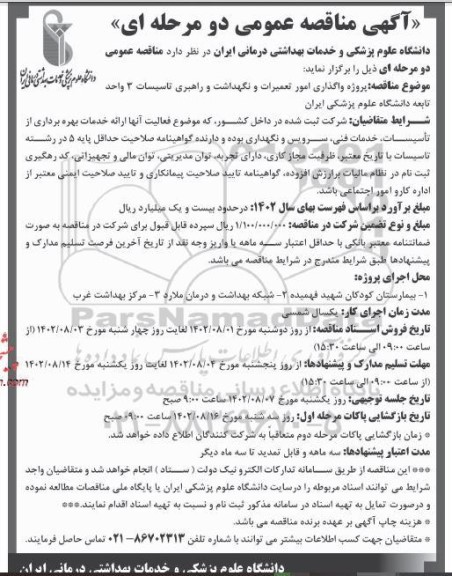 «آگهی مناقصه عمومی دو مرحله ای»
دانشگاه علوم پزشکی و خدمات بهداشتی درمانی ایران در نظر دارد مناقصه عمومی
دو مرحله ای ذیل را برگزار نماید:
موضوع مناقصه: پروژه واگذاری امور تعمیرات و نگهداشت و راهبری تاسیسات ۳ واحد
تابعه دانشگاه علوم پزشکی ایران
شرایط متقاضیان: شرکت ثبت شده در داخل کشور، که موضوع فعالیت آنها ارائه خدمات بهره برداری از
تأسیسات، خدمات فنی، سرویس و نگهداری بوده و دارنده گواهینامه صلاحیت حداقل پایه ۵ در رشته
تاسیسات با تاریخ معتبر، ظرفیت مجاز کاری، دارای تجربه، توان مدیریتی، توان مالی و تجهیزاتی، کد رهگیری
ثبت نام در نظام مالیات برارزش افزوده، گواهینامه تایید صلاحیت پیمانکاری و تایید صلاحیت ایمنی معتبر از
اداره کار و امور اجتماعی باشد.
مبلغ برآورد براساس فهرست بهای سال ۱۴۰۲: درحدود بیست و یک میلیارد ریال
مبلغ و نوع تضمین شرکت در مناقصه: ۱/۱۰۰/۰۰۰/۰۰۰ ریال سپرده قابل قبول برای شرکت در مناقصه به صورت
ضمانتنامه معتبر بانکی با حداقل اعتبار سه ماهه یا واریز وجه نقد از تاریخ آخرین فرصت تسلیم مدارک و
پیشنهادها طبق شرایط مندرج در شرایط مناقصه می باشد.
محل اجرای پروژه:
۱- بیمارستان کودکان شهید فهمیده ۲- شبکه بهداشت و درمان ملارد ۳- مرکز بهداشت غرب
مدت زمان اجرای کار: یکسال شمسی
تاریخ فروش اسناد مناقصه: از روز دوشنبه مورخ ۱۴۰۲/۰۸/۰۱ لغایت روز چهار شنبه مورخ ۱۴۰۲/۰۸/۰۳ (از
ساعت ۰۹:۰۰ الی ساعت ۱۵:۳۰)
مهلت تسلیم مدارک و پیشنهادها: از روز پنجشنبه مورخ ۱۴۰۲/۰۸/۰۴ لغایت روز یکشنبه مورخ ۱۴۰۲/۰۸/۱۴
(از ساعت ۰۹:۰۰ الی ساعت ۱۵:۳۰)
تاریخ جلسه توجیهی: روز یکشنبه مورخ ۱۴۰۲/۰۸/۰۷ ساعت ۰۹:۰۰ صبح
تاریخ بازگشایی پاکات مرحله اول: روز سه شنبه مورخ ۱۴۰۲/۰۸/۱۶ ساعت ۰۹:۰۰ صبح
* زمان بازگشایی پاکات مرحله دوم متعاقبا به شرکت کنندگان اطلاع داده خواهد شد.
مدت اعتبار پیشنهادها: سه ماهه و قابل تمدید تا سه ماه دیگر
*** این مناقصه از طریق سامانه تدارکات الکترونیک دولت (ستاد) انجام خواهد شد و متقاضیان واجد
شرایط می توانند اسناد مربوطه را درسایت دانشگاه علوم پزشکی ایران یا پایگاه ملی مناقصات مطالعه نموده
و درصورت تمایل به تهیه اسناد در سامانه مذکور ثبت نام و نسبت به تهیه اسناد اقدام نمایند.***
* هزینه چاپ آگهی بر عهده برنده مناقصه می باشد.
* متقاضیان جهت کسب اطلاعات بیشتر می توانند با شماره تلفن ۸۶۷۰۲۳۱۳-۰۲۱ تماس حاصل فرمایند.
دانشگاه علوم پزشکی و خدمات بهداشتی درمانی ایران